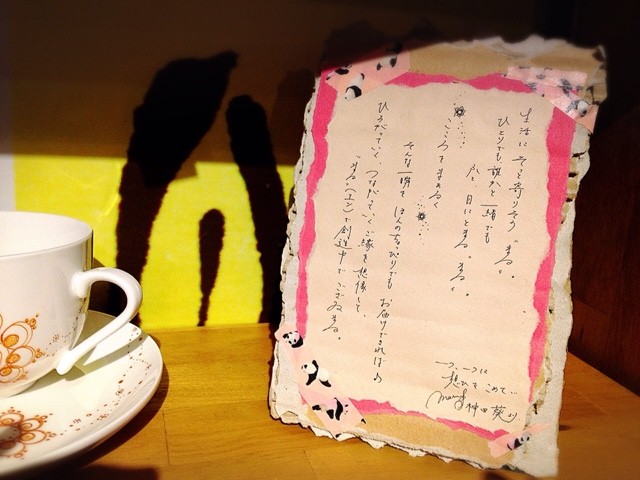 生活にそっと寄りそう"まる"。
ひとりでも、誰かと一緒でも
ふと 目にとまる"まる"。
こころをまぁるく
そんな一瞬を ほんのちょっぴりでも お届けできれば♪
ひろがっていく、つながっていくご縁を想像して
"まる(エン)で創造中でござゐまる。
一つ、一つに
想ひをこめて…
神田 葵